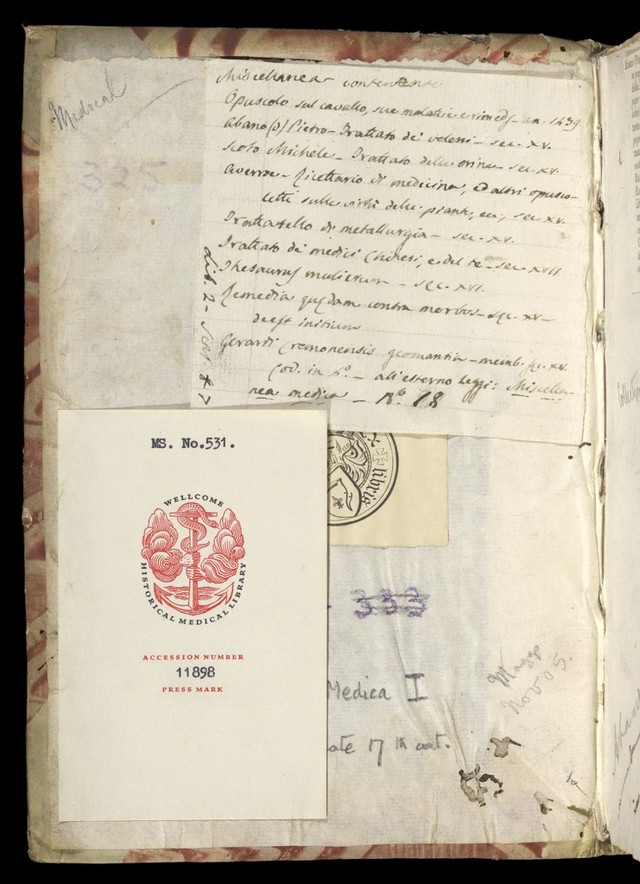 Medical
325
Miscellanea contenente
Opuscolo sul cavallo, sue malattie e rimedj - an. 1439
Abano (d') Pietro - Trattato de' veleni - sec. XV.
Scoto Michele - Trattato delle orine - sec. XV.
Averroe - Ricettario di medicina, ed altri opusco-
letti sulle virtù delle piante, ec, sec XV.
Trattatello di metallurgia - sec. XV.
Trattato de' medici Chinesi, e del te - sec. XVII
Thesaurus mulierum - sec. XVI.
Remedia quædam contra morbos - sec. XV -
deest initium
Gerardi Cremonensis geomantia - memb. sec. XV.
Cod. in 4º - all'esterno leggi: Miscella-
nea medica - Nº 18
MS. No.531.
WELLCOME
HISTORICAL MEDICAL LIBRARY
ACCESSION NUMBER
11898
PRESS MARK
libris
333
Medica I
17th cent.
Maggs
Nov 05.